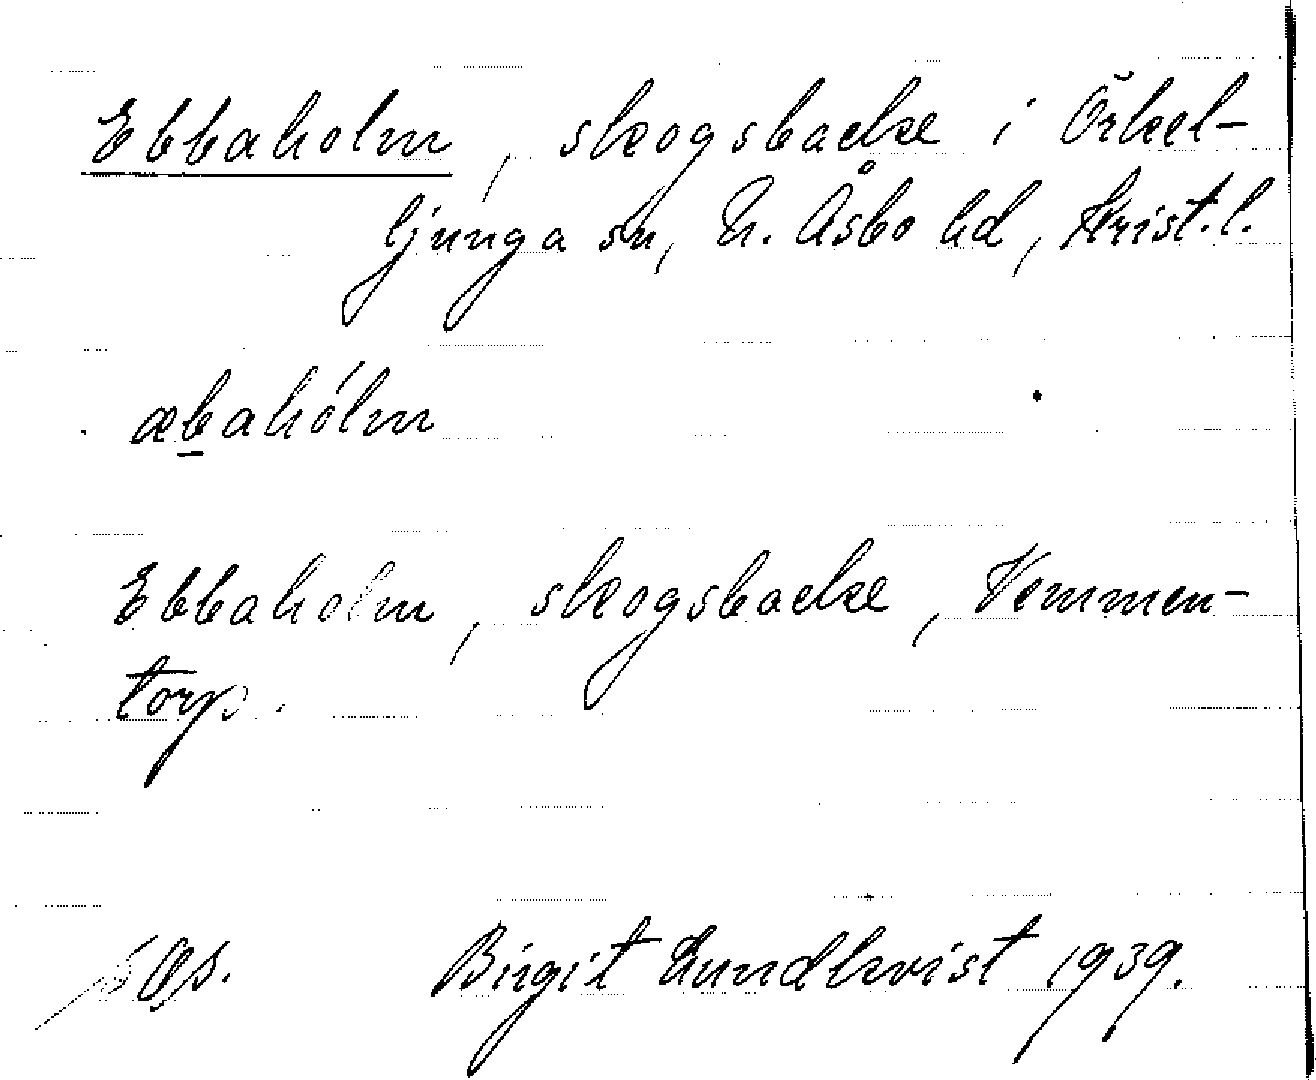 Ebbaholm, skogsbacke i Örkel-
ljunga sn, N. Åsbo hd, Krist. l.
æbahólm
Ebbaholm, skogsbacke, Vemmen-
torp.
Birgit Lundkvist 1939.